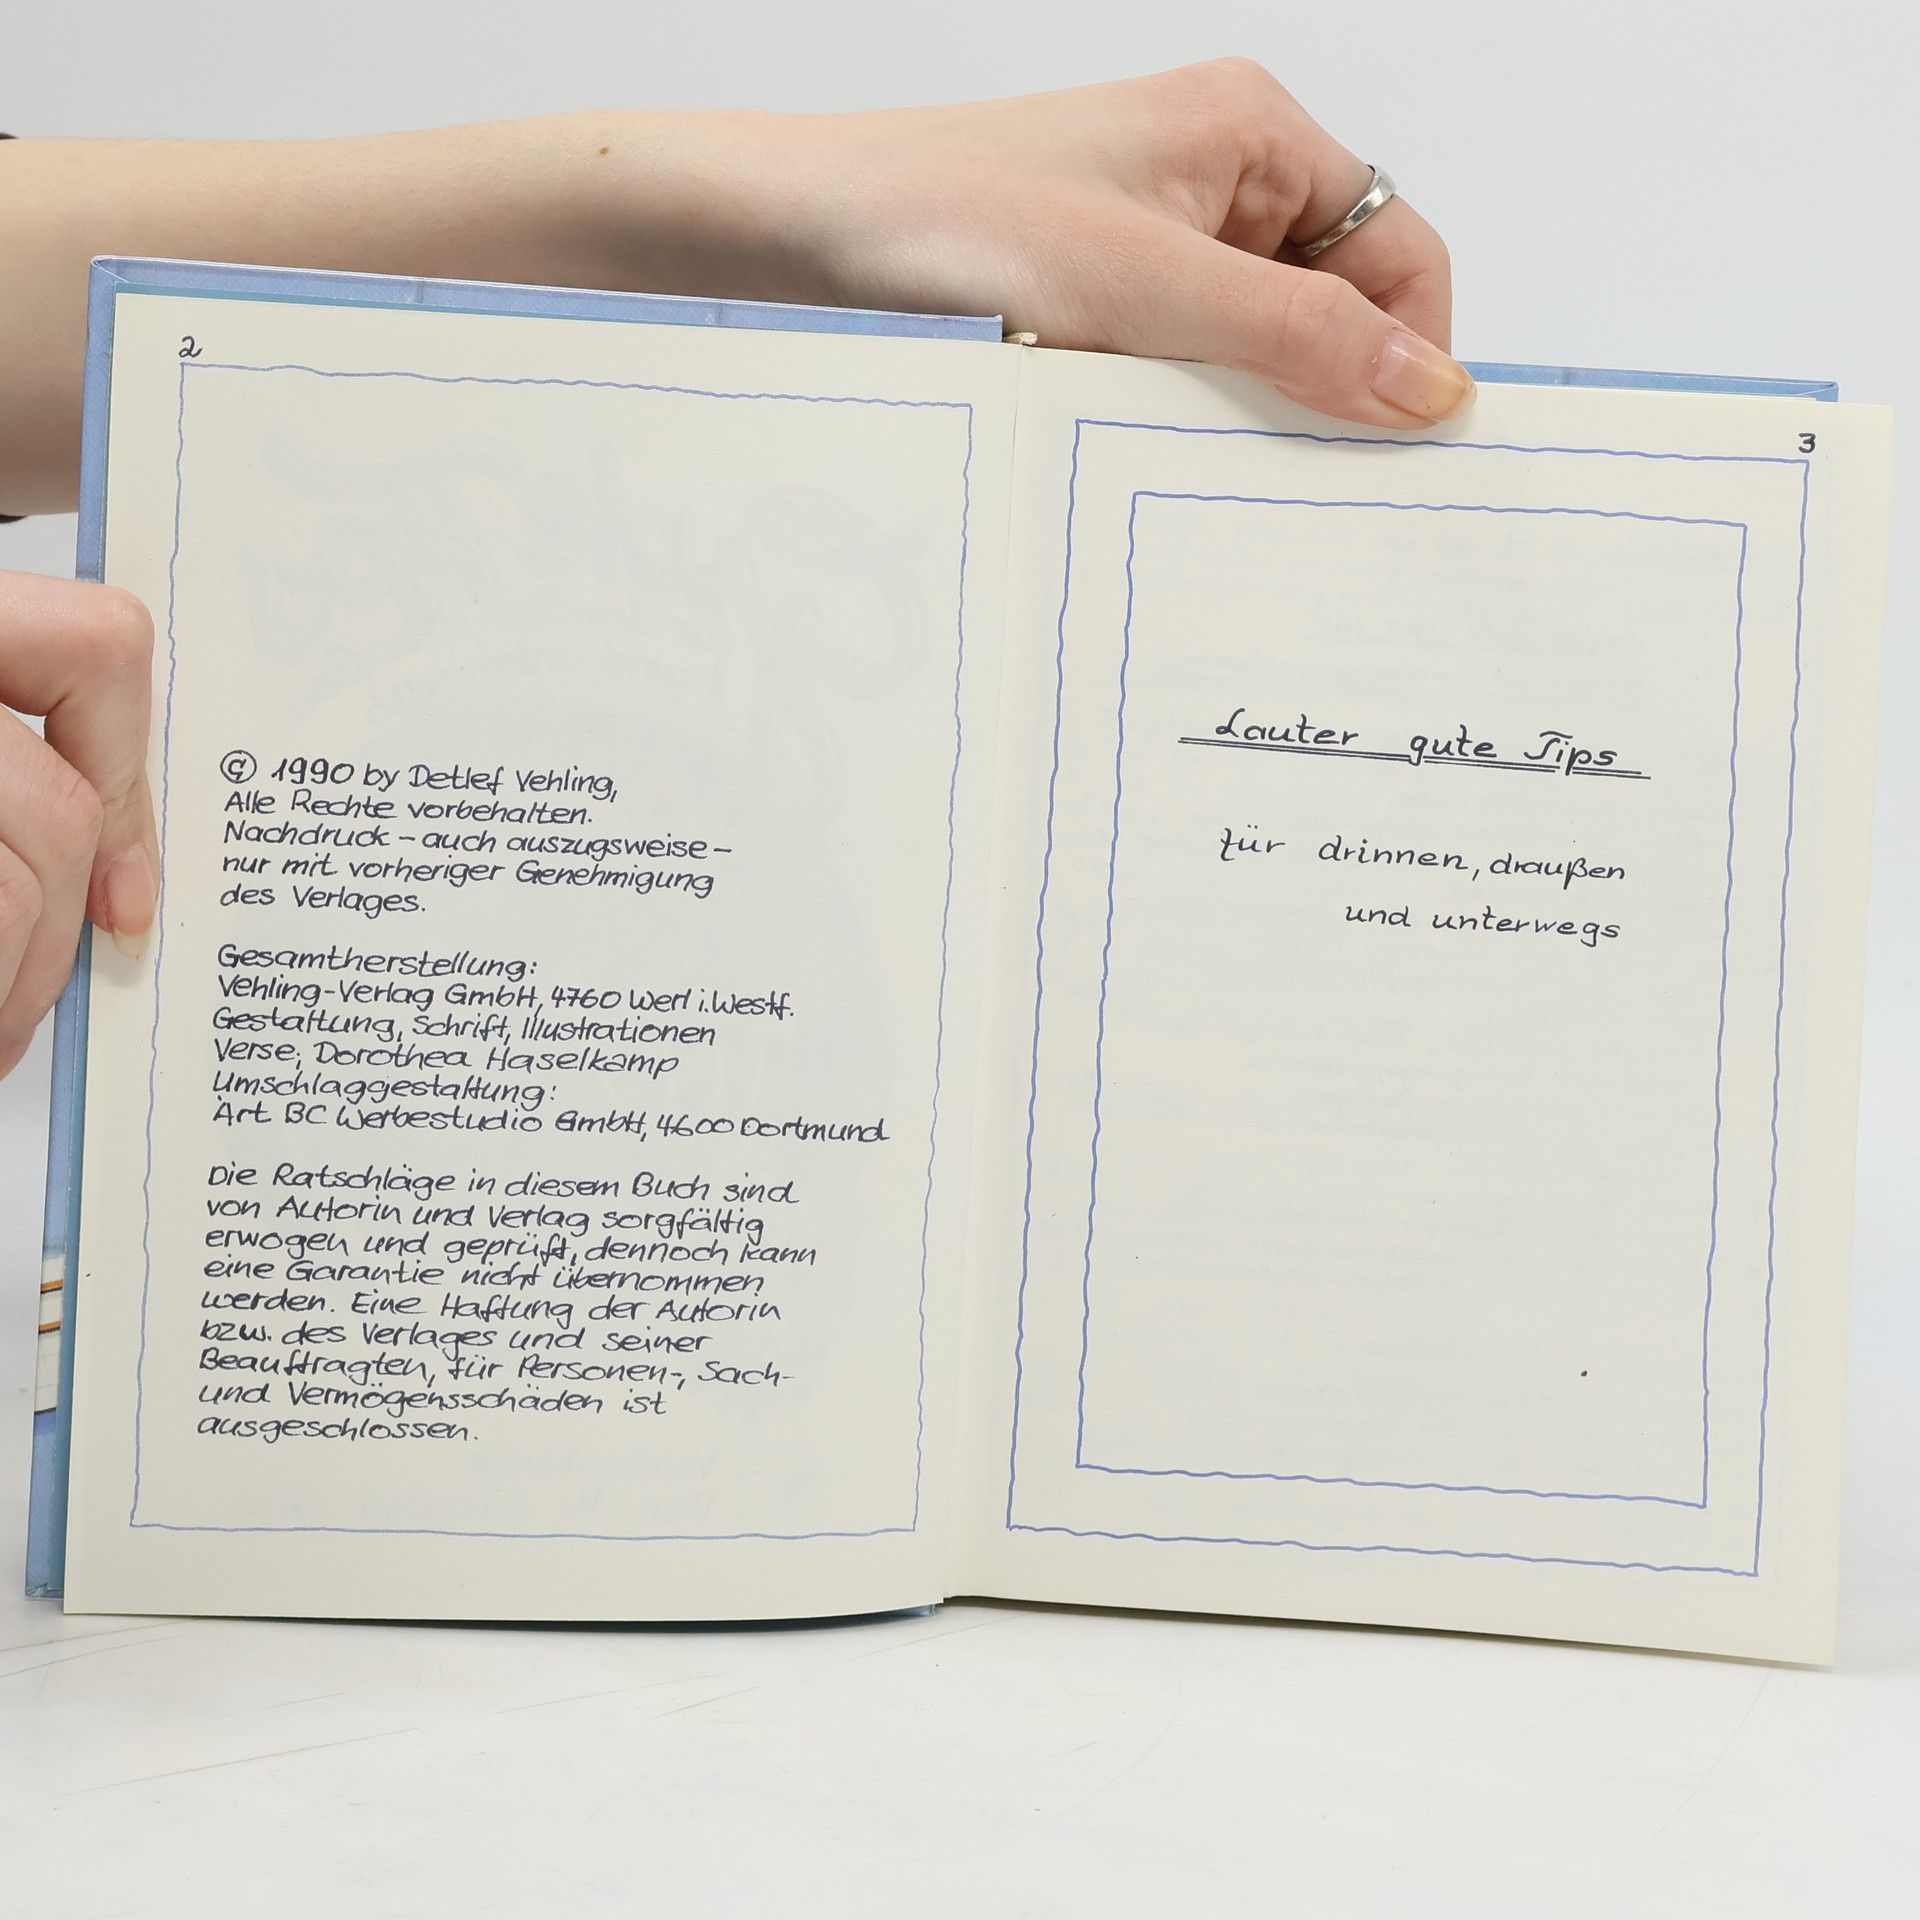 2
© 1990 by Detlef Vehling,
Alle Rechte vorbehalten.
Nachdruck – auch auszugsweise –
nur mit vorheriger Genehmigung
des Verlages.
Gesamtherstellung:
Vehling-Verlag GmbH, 4760 Werl i. Westf.
Gestaltung, Schrift, Illustrationen
Verse; Dorothea Haselkamp
Umschlaggestaltung:
Art BC Werbestudio GmbH, 4600 Dortmund
Die Ratschläge in diesem Buch sind
von Autorin und Verlag sorgfältig
erwogen und geprüft, dennoch kann
eine Garantie nicht übernommen
werden. Eine Haftung der Autorin
bzw. des Verlages und seiner
Beauftragten, für Personen-, Sach-
und Vermögensschäden ist
ausgeschlossen.
3
Lauter gute Tips
für drinnen, draußen
und unterwegs